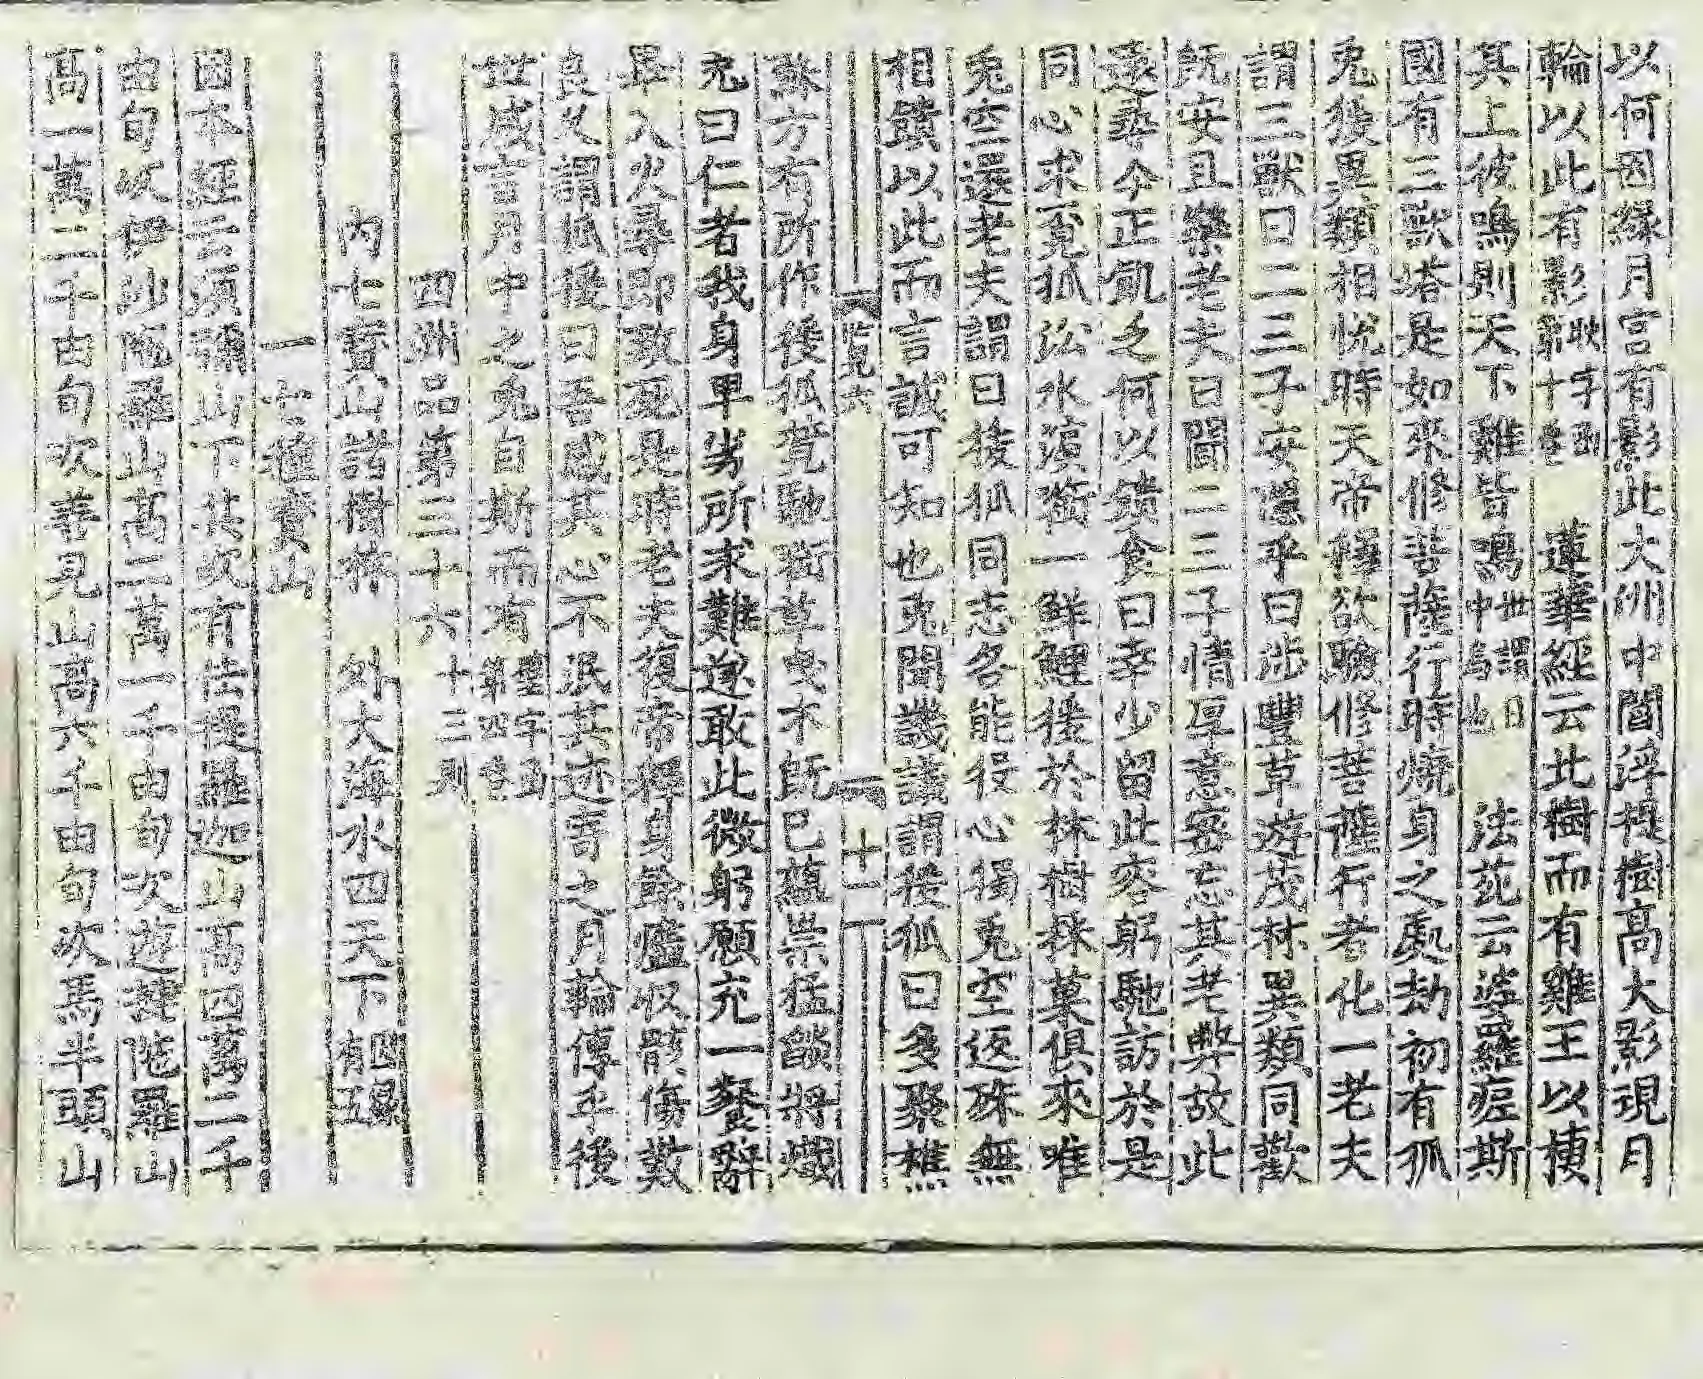 以何因緣月宮有影此大洲中閻浮提樹高大影現月
輪以此有影耿字函第十卷 蓮華經云此樹而有雞王以棲
其上彼鳴則天下雞皆鳴世謂日中烏也 法苑云婆羅痆斯
國有三獸塔是如來修菩薩行時燒身之處劫初有狐
兔猨異類相忧時天帝釋欲驗修菩薩行者化一老夫
謂三獸曰二三子安隱乎曰涉豐草遊茂林異類同歡
既安且樂老夫曰聞二三子情厚意密忘其老弊故此
遠尋今正飢乏何以饋食曰幸少留此麥躬馳訪於是
同心求覓狐沿水濱銜一鮮鯉猨於林樹採菓俱來唯
兔空還老夫謂曰猨狐同志各能役心獨兔空返殊無
相饋以此而言誠可知也兔聞譏議謂猨狐曰多聚樵
蘇方有所作猨狐競馳銜草曳木既已蘊崇猛燄將熾
兔曰仁者我身卑劣所求難遂敢此微躬願充一餐辭
畢入火尋即致死是時老夫復帝釋身除燼收骸傷歎
良久謂狐猨曰吾感其心不泯其迹寄之月輪傳乎後
世咸言月中之兔自斯而有
四洲品第三十六 十三則
內七寶山諸樹林 外大海水四天下
一 七種寶山
因本經云須彌山下其次有佉提羅迦山高四萬二千
由旬次伊沙陁羅山高二萬一千由旬次遊揵陁羅山
高一萬二千由旬次善見山高六千由旬次馬半頭山